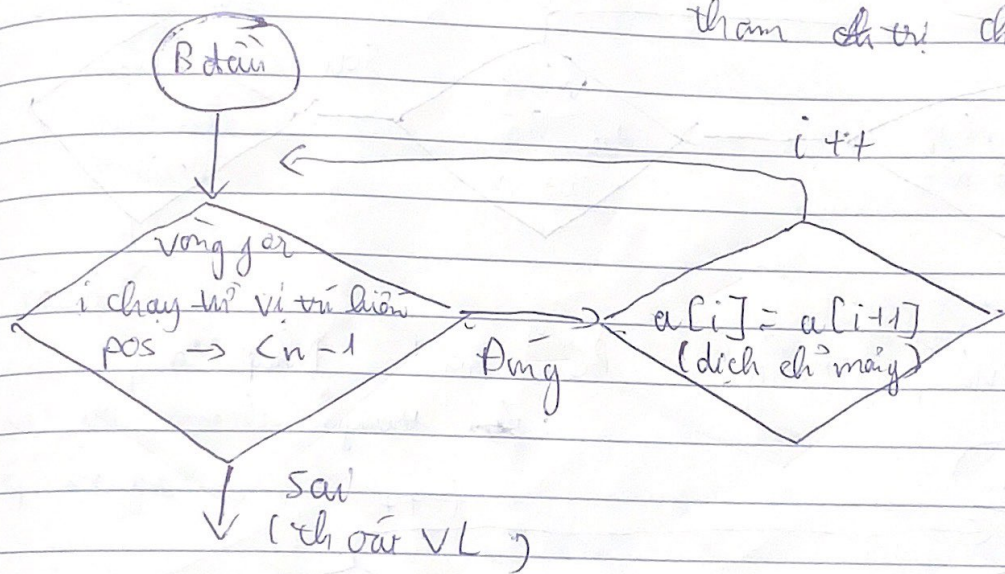 tham trị
B đầu
i++
vòng for
i chạy từ vị trí biến
pos → <n-1
Đúng
a[i] = a[i+1]
(dịch chỉ mảng)
Sai
(thoát VL)